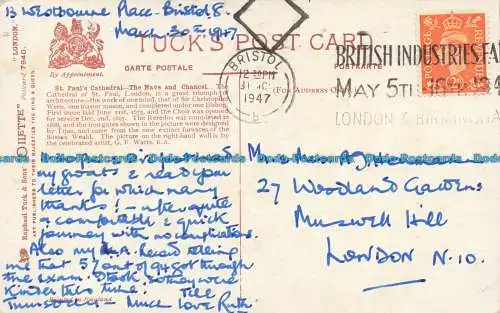 13 Westbourne Place. Bristol. 8.
March 30th 1947.
TUCK'S POST CARD
CARTE POSTALE
POSTKARTE
By Appointment.
(For Address Only)
St. Paul's Cathedral—The Nave and Chancel. The
Cathedral of St. Paul, London, is a great triumph in
architecture—the work of one mind, that of Sir Christopher
Wren, one master mason, and completed under one Bishop.
First stone laid June 21st, 1675, and the Choir was opened
for service Dec. 2nd, 1697. The Reredos was completed in
and the iron gates shown in the picture were designed
by Tijou, and came from the now extinct furnaces of the
Sussex Weald. The picture on the right-hand wall is by
the celebrated artist, G. F. Watts, R.A.
"LONDON."
Postcard 7940.
OILETTE
Raphael Tuck & Sons'
ART PUBLISHERS TO THEIR MAJESTIES THE KING & QUEEN
BRISTOL
12.30PM
1947
BRITISH INDUSTRIES FA
MAY 5TH
LONDON & BIRMINGHA
my goats & read your
letter for which many
thanks! – after quite
a comfortable & quick
journey with no complications.
Also my Record telling
me that 51 out of 94 got through
the exam. so they were
Kinder this time. Till
Much love Ruth
27 Woodland Gardens
Muswell Hill
LONDON N.10.